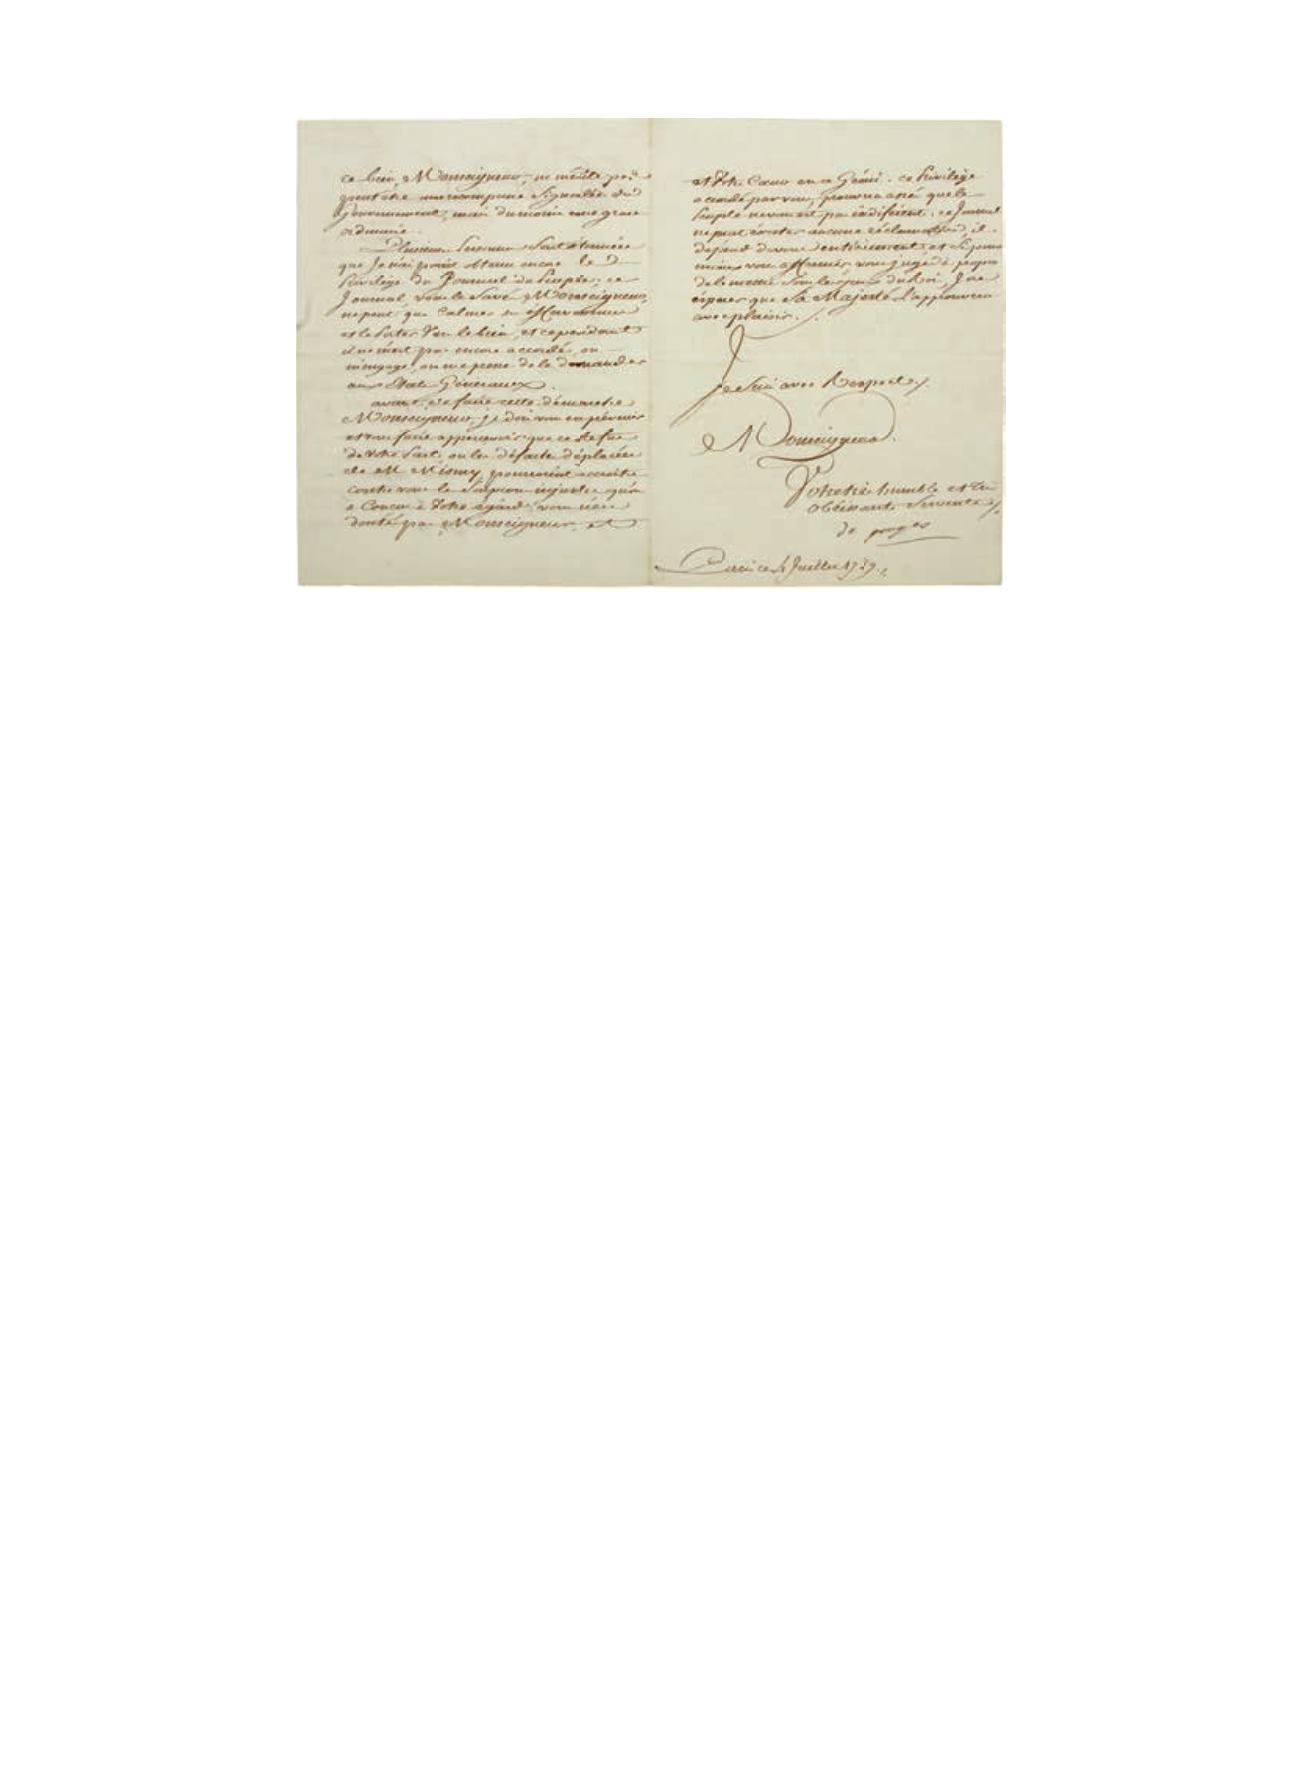 ce bien, Monseigneur, ne mérite
une recompense signalée du
Gouvernement, mais du moins une grace
ordinaire.
Plusieurs Personnes sont étonnées
que Je n'ai point obtenu encore le
Privilège du Journal du Peuple; ce
Journal, vous le savé Monseigneur,
ne peut que calmer
et le Porter vers le bien, et cependant
il ne m'est pas encore accordé, on
on me presse de le demander
aux Etats Généraux.
avant de faire cette démarche
Monseigneur, je dois vous en prévenir
et vous faire appercevoir que ce Refus
de votre Part, ou les déplacées
de M Mismy, pourroient accroitre
contre vous le Soupçon injuste qu'on
a Concu à Votre égard; vous n'en
douté pas Monseigneur, et
et Votre Cœur en a Gémi. ce Privilège
accordé par vous, prouvera que le
Peuple ne vous est pas indiférent. ce Journal
ne peut aucune réclamation, il
dépend de vous entièrement et
vous jugé à propos
de le mettre Sous les yeux du Roi, J'ose
espérer que Sa Majesté l'approuvera
avec plaisir.
Je Suis avec Respect
Monseigneur
Votre très humble et très
obéissante Servante
de gouges
Paris ce 4 Juillet 1789.